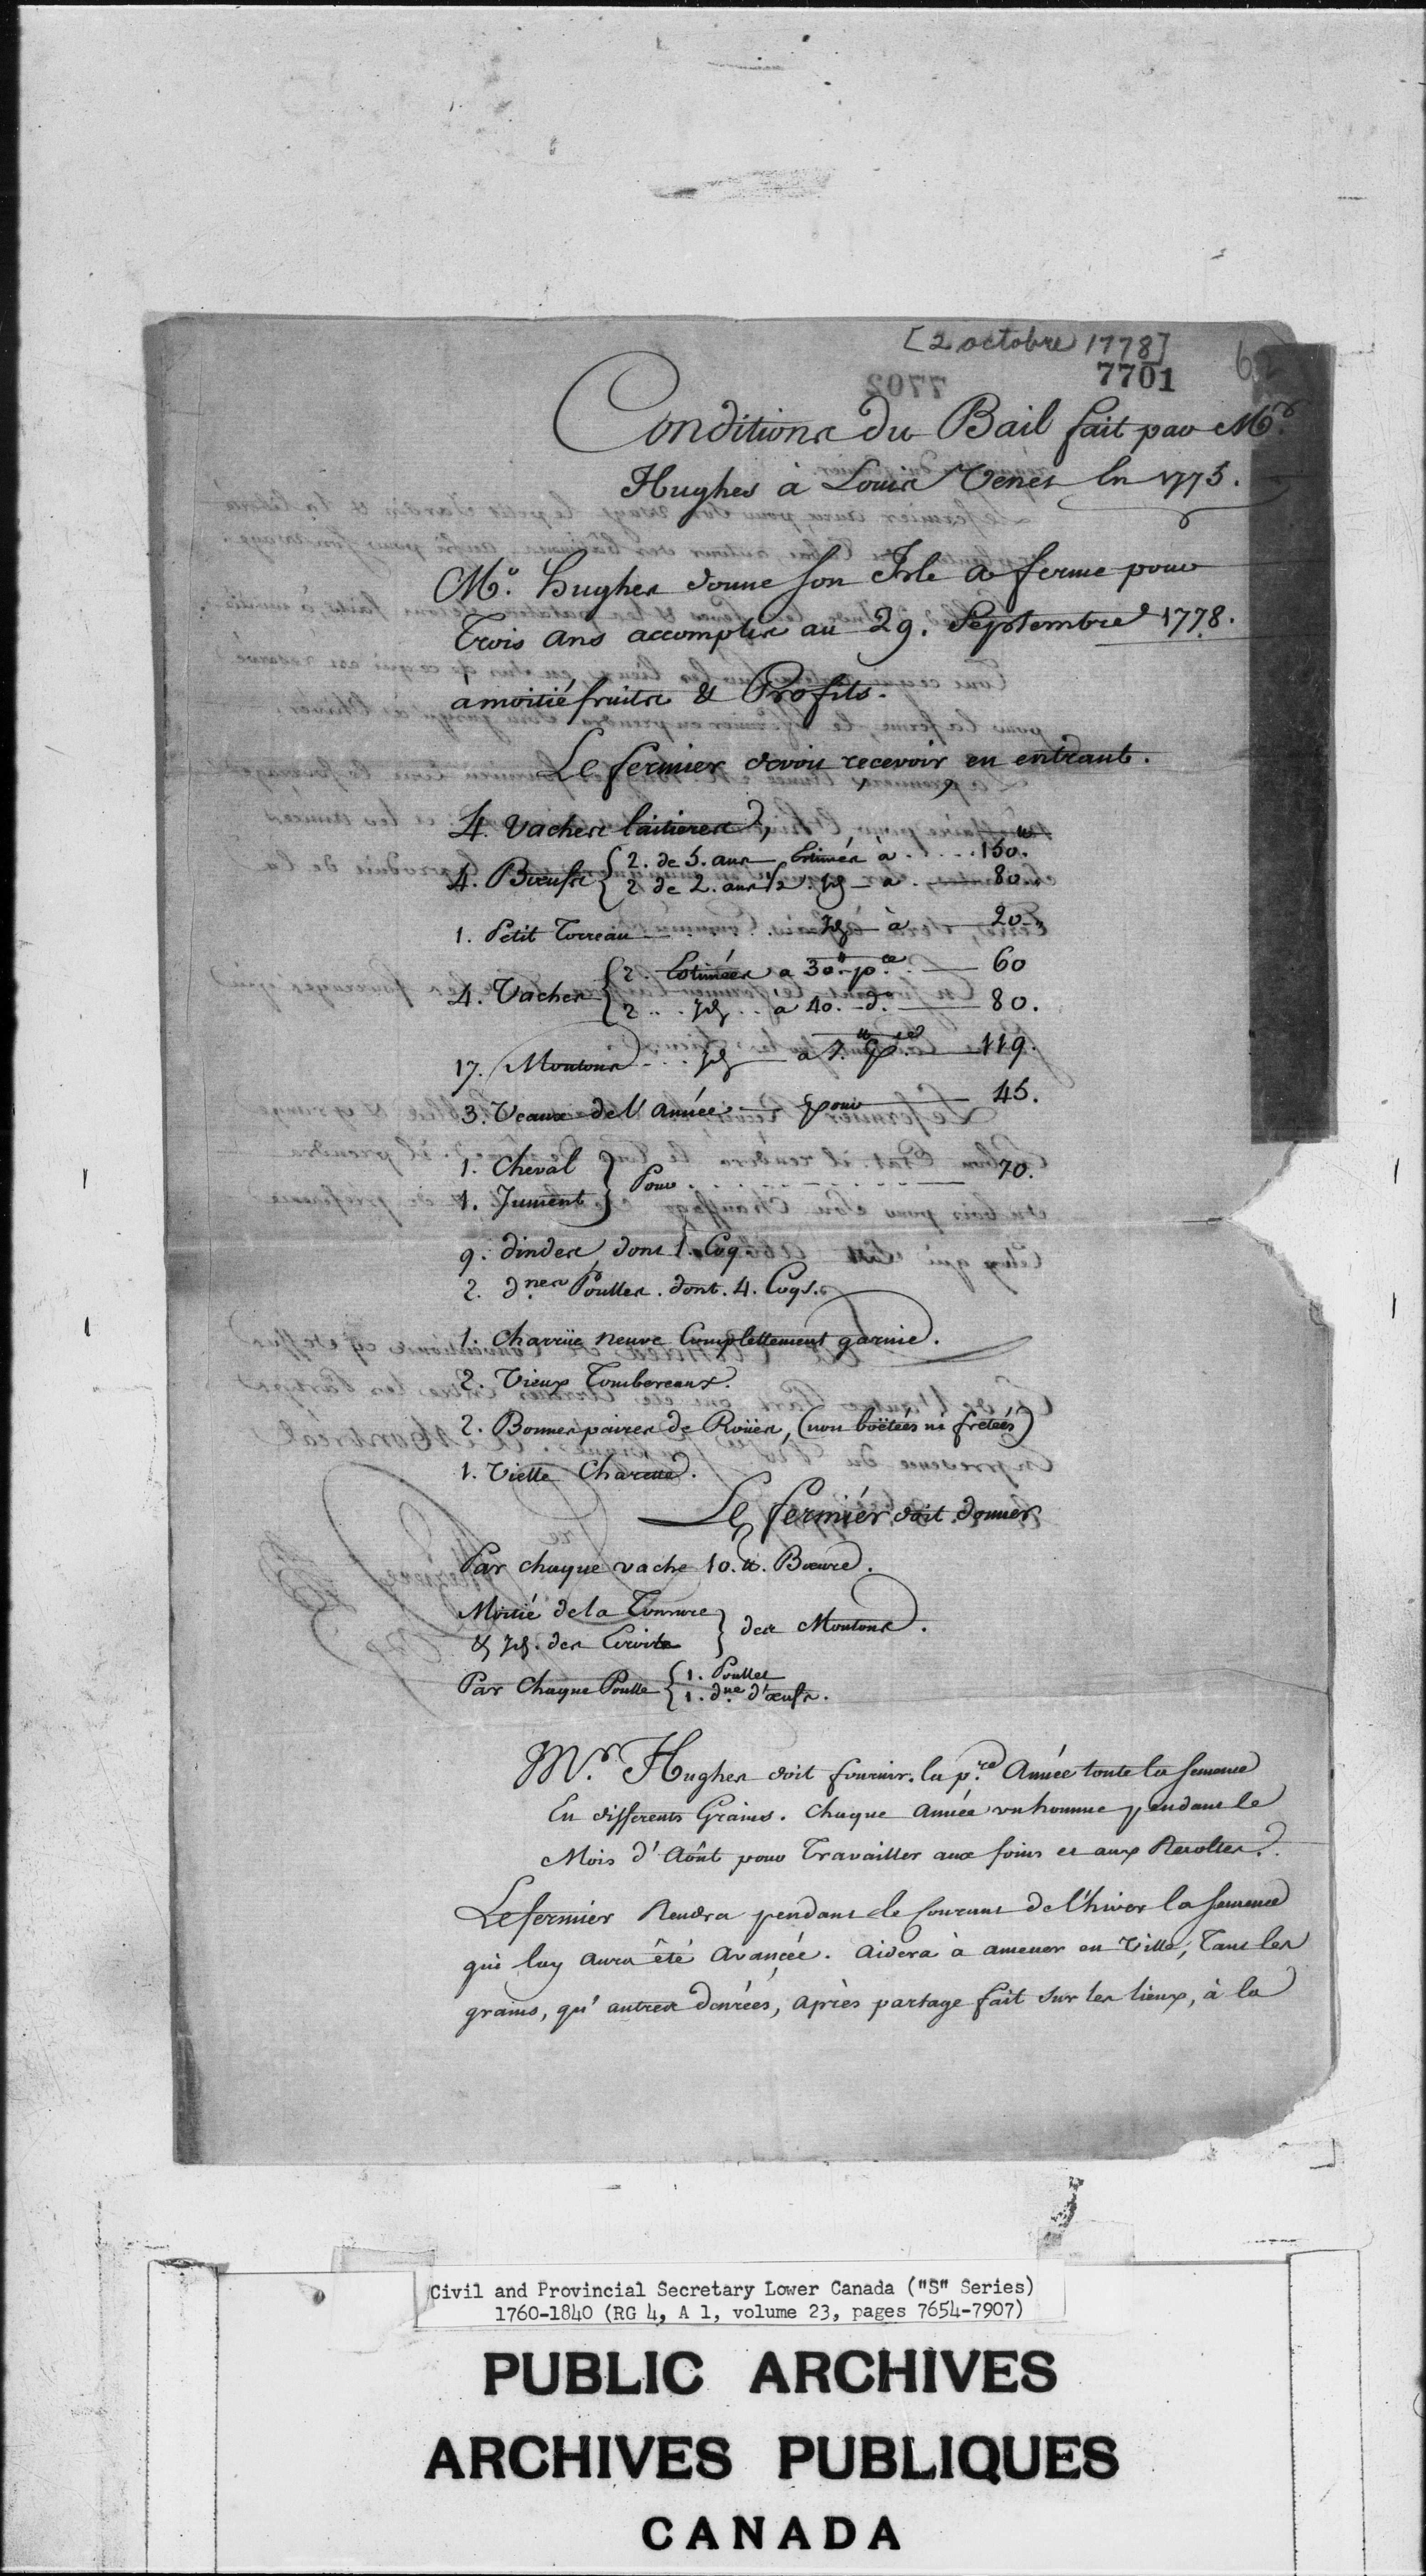 [2 octobre 1778]
7701
62
7702
Conditions du Bail fait par Mr.
Hughes à Louis Venet En 1775.
Mr. Hughes donne son Isle a ferme pour
Trois ans accomplis au 29. Septembre 1778.
a moitié fruits & Profits.
Le fermier devoit recevoir en entrant.
4. Vaches laitieres,
4. Bœufs { 2. de 5. ans Estimés à .... 150.tt
2 de 2. ans ½. Id à . 80.
1. Petit Torreau ..... Id à 20.
4. Vaches { 2. Estimées a 30.tt pce. 60
2 .. Id .. a 40. do. 80.
17. Moutons ... Id a 7.tt pce. 119.
3. Veaux de l'année pour 45.
1. Cheval
1. Jument } Pour ........ 70.
9. dindes dont 1. Coq
2. dnes Poulles. dont. 4. Coqs.
1. Charrüe neuve Complettement garnie.
2. Vieux Tombereaux.
2. Bonnes paires de Roües, (non boëtées ni fretées)
1. Vielle Charette.
Le fermiér doit donner
Par chaque vache 10. tt. Bœure.
Moitié de la Tonture
& Id. des Croits } des Moutons.
Par Chaque Poulle { 1. Poullet
1. dne d'œufs.
Mr. Hughes doit fournir. la pre. Année toute la semence
En differents Grains. Chaque année un homme pendant le
Mois d'Aôut pour Travailler aux foins et aux Recoltes.
Le fermier Rendra pendant le Courant de l'hiver la semence
qui luy aura êté avancée. aidera à amener en Ville, Tant les
grains, qu'autres denrées, après partage fait sur les lieux, à la
Civil and Provincial Secretary Lower Canada ("S" Series)
1760-1840 (RG 4, A 1, volume 23, pages 7654-7907)
PUBLIC ARCHIVES
ARCHIVES PUBLIQUES
CANADA